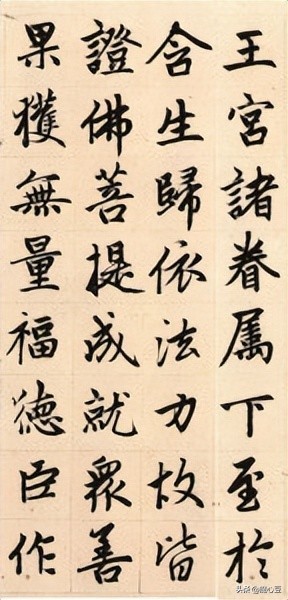 王宮諸眷属下至於
含生歸依法力故皆
證佛菩提成就眾善
果獲無量福德臣作
头条@幽心豆